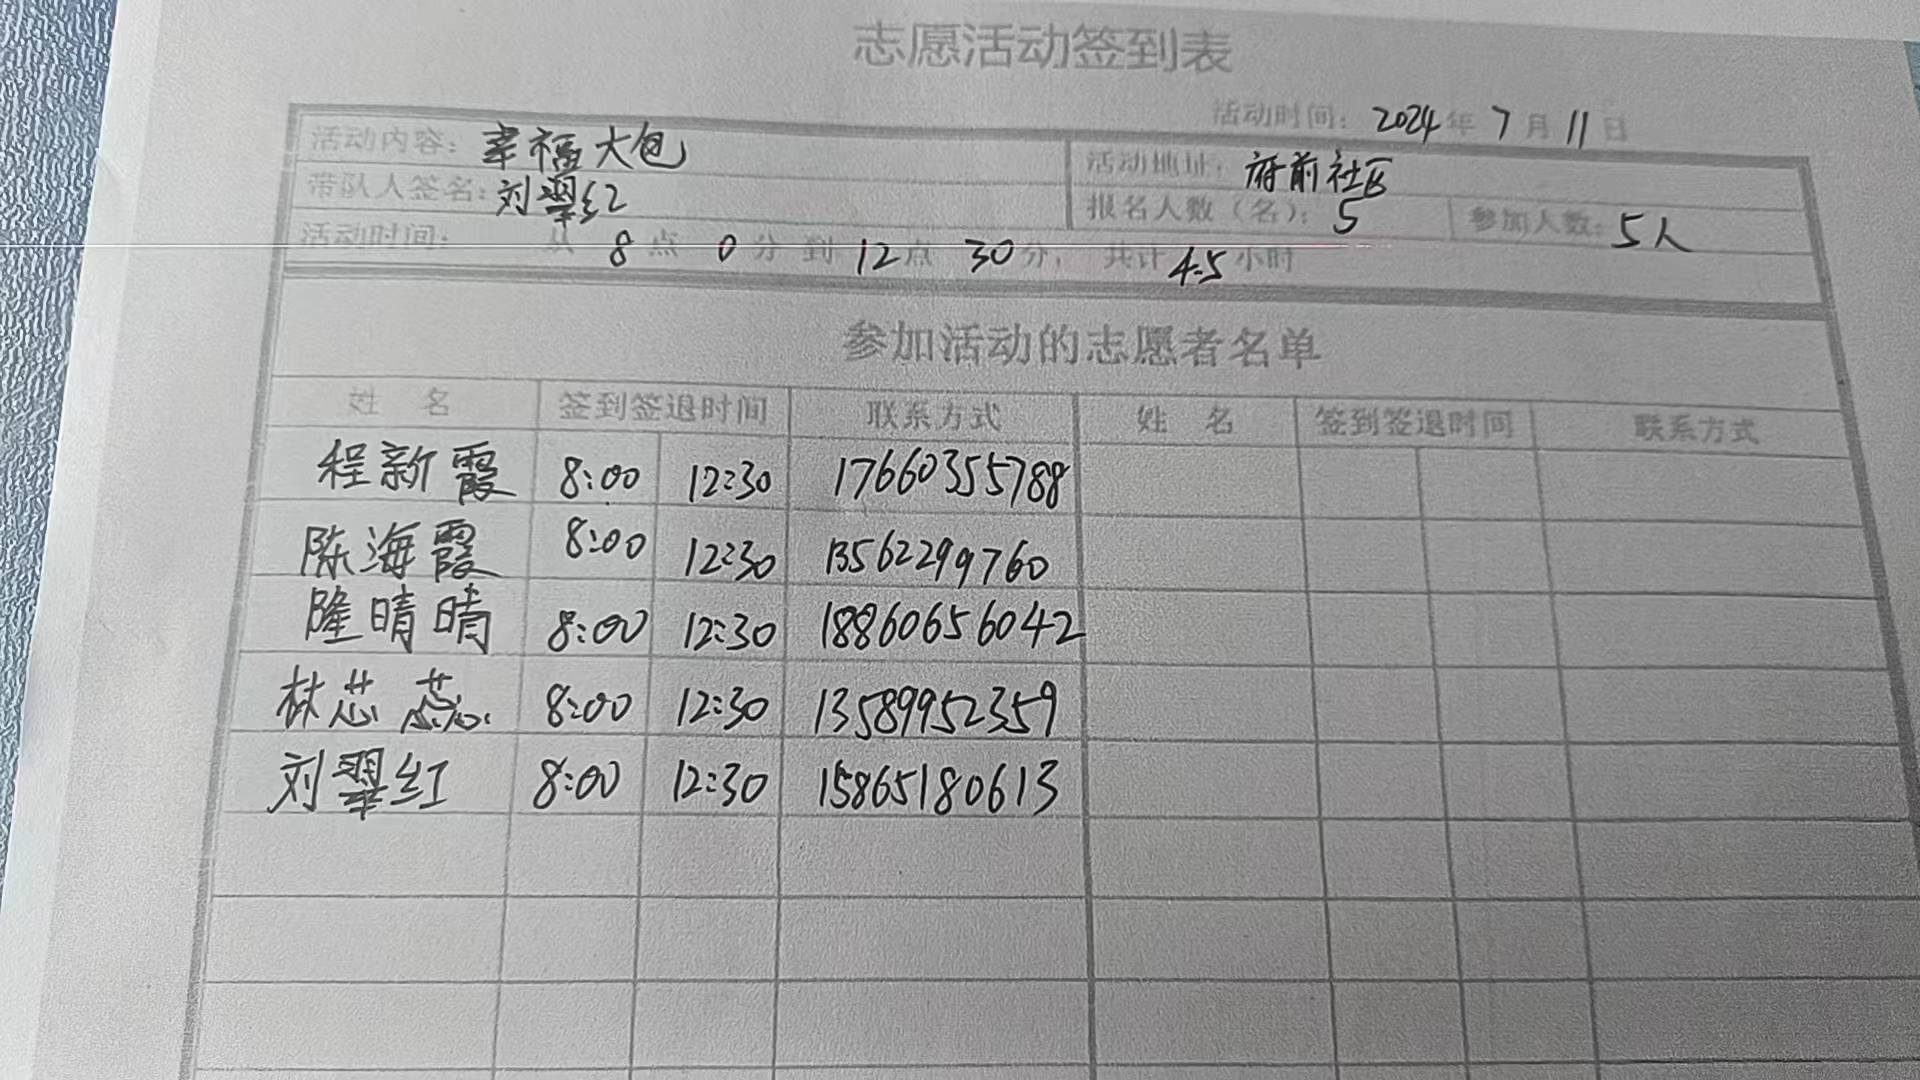 志愿活动签到表
活动时间：2024年7月11日
活动内容：幸福大包
活动地址：府前社区
带队人签名：刘翠红
报名人数（名）：5 参加人数：5人
活动时间：从8点0分到12点30分，共计4.5小时
参加活动的志愿者名单
姓 名 签到签退时间 联系方式 姓 名 签到签退时间 联系方式
程新霞 8:00 12:30 17660355788
陈海霞 8:00 12:30 13562299760
隆晴晴 8:00 12:30 18860656042
林芯蕊 8:00 12:30 13589952359
刘翠红 8:00 12:30 15865180613